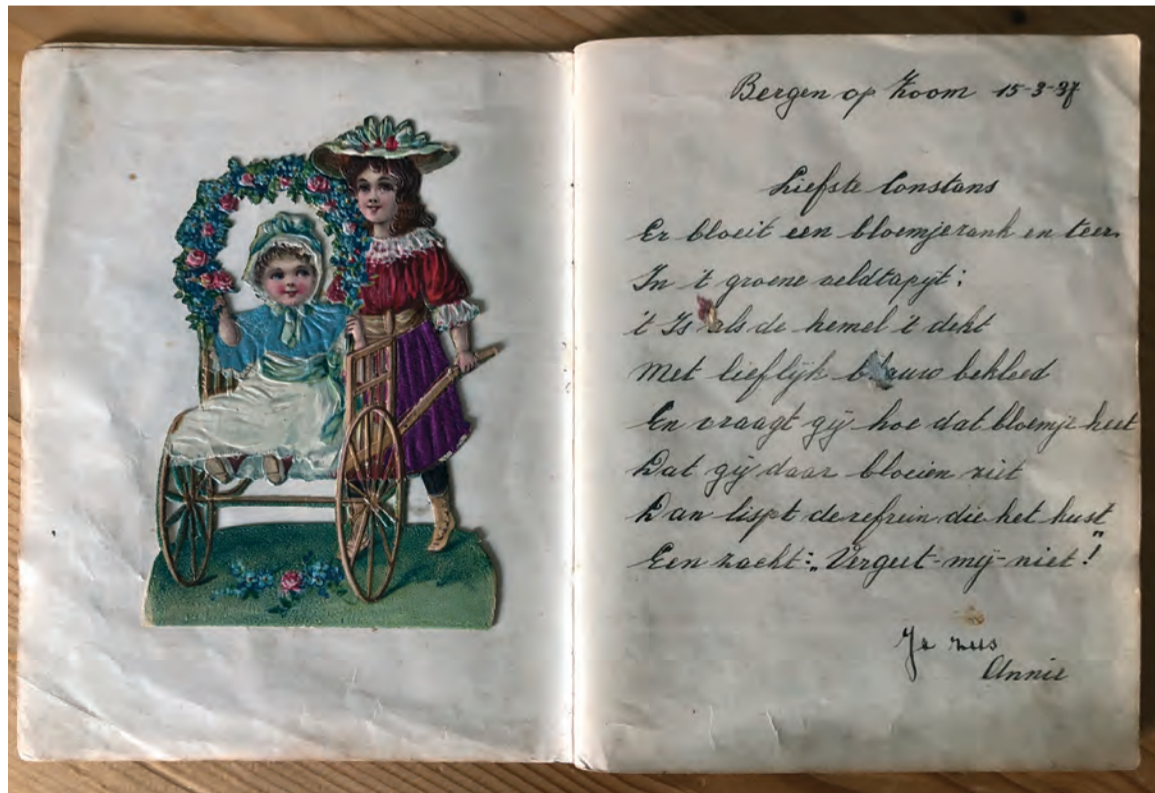 Bergen op Zoom 15-3-37
Liefste Constans
Er bloeit een bloemje rank en teer.
In 't groene veldtapijt;
't Is als de hemel 't dekt
Met lieflijk blauw bekleed
En vraagt gij hoe dat bloemje heet
Dat gij daar bloeien ziet
Dan lispt de refrein die het kust
Een zacht: „Vergeet-mij-niet!"
Je zus
Annie